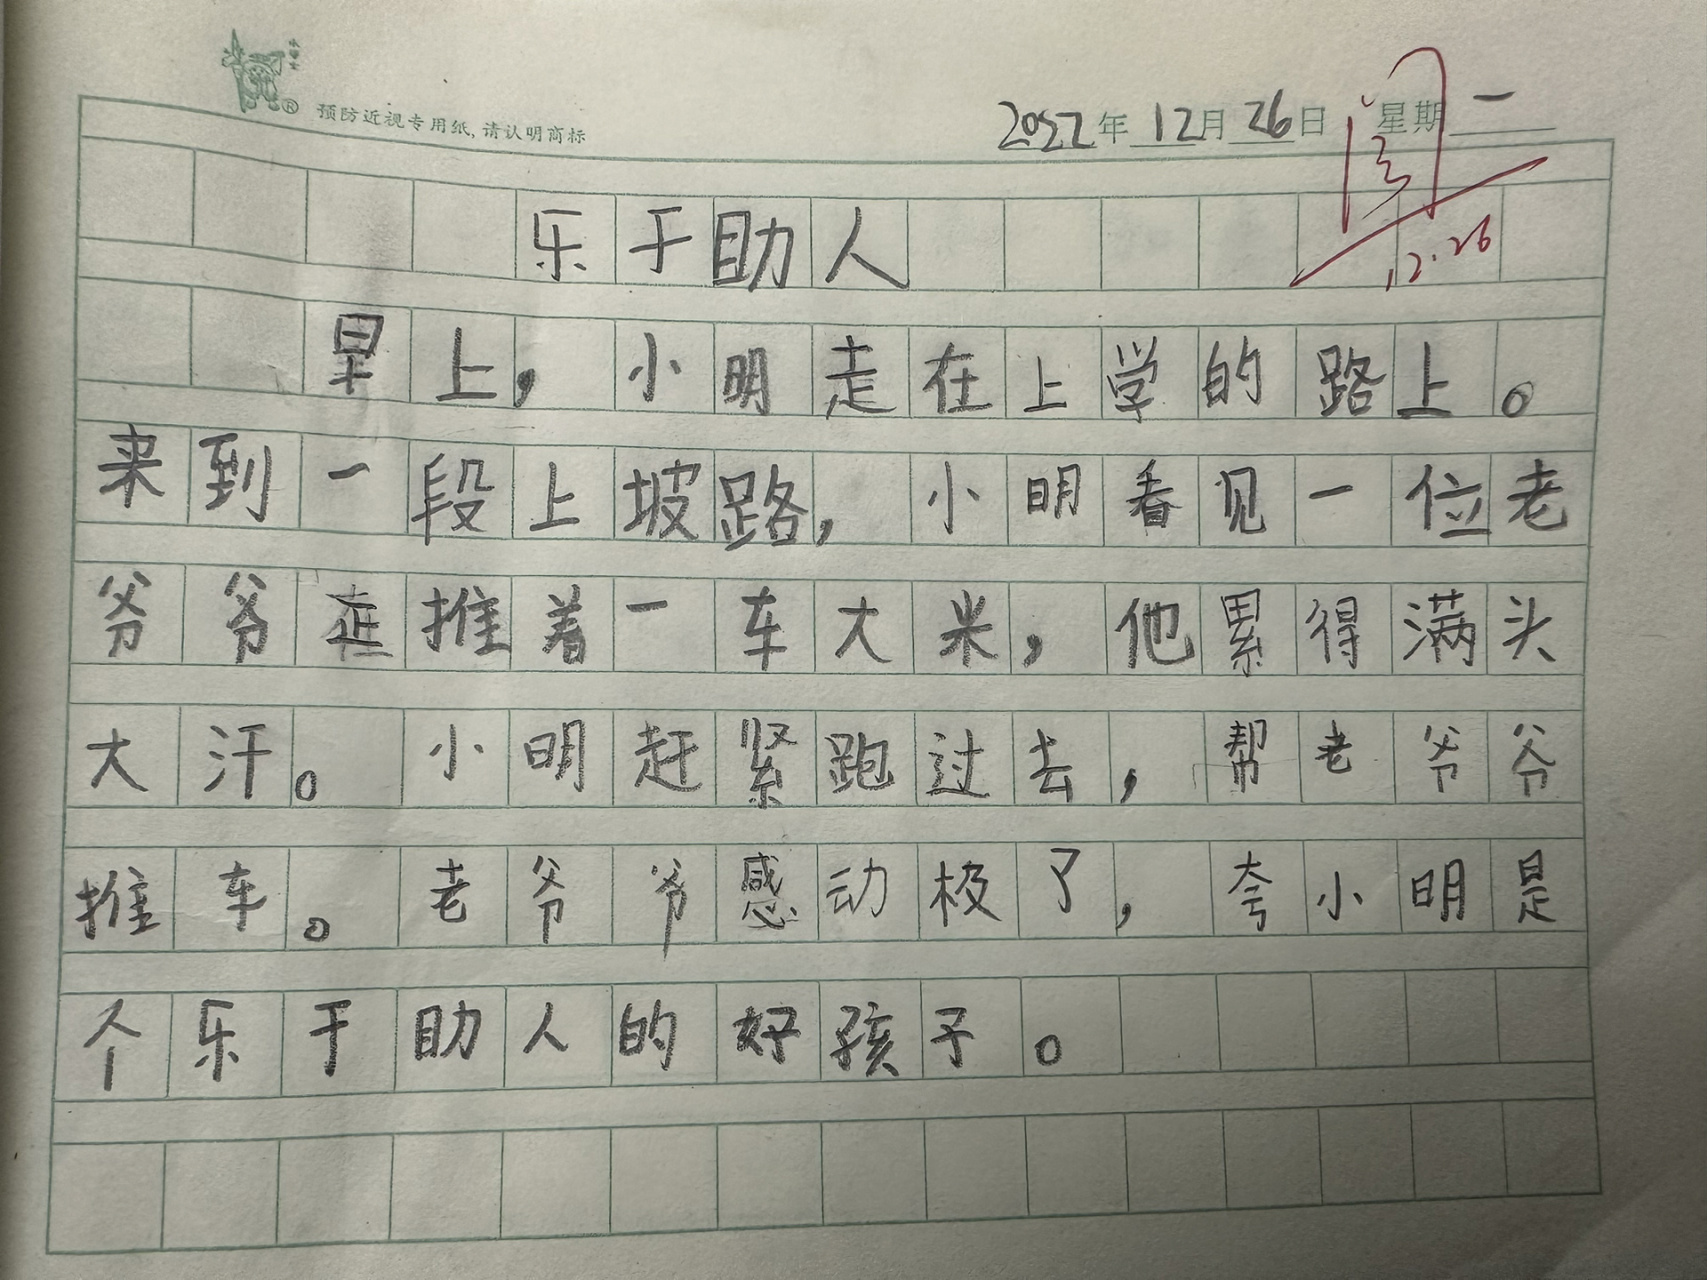 预防近视专用纸,请认明商标
2022年12月26日 星期一
阅
12.26
乐于助人
早上，小明走在上学的路上。
来到一段上坡路，小明看见一位老
爷爷正推着一车大米，他累得满头
大汗。小明赶紧跑过去，帮老爷爷
推车。老爷爷感动极了，夸小明是
个乐于助人的好孩子。